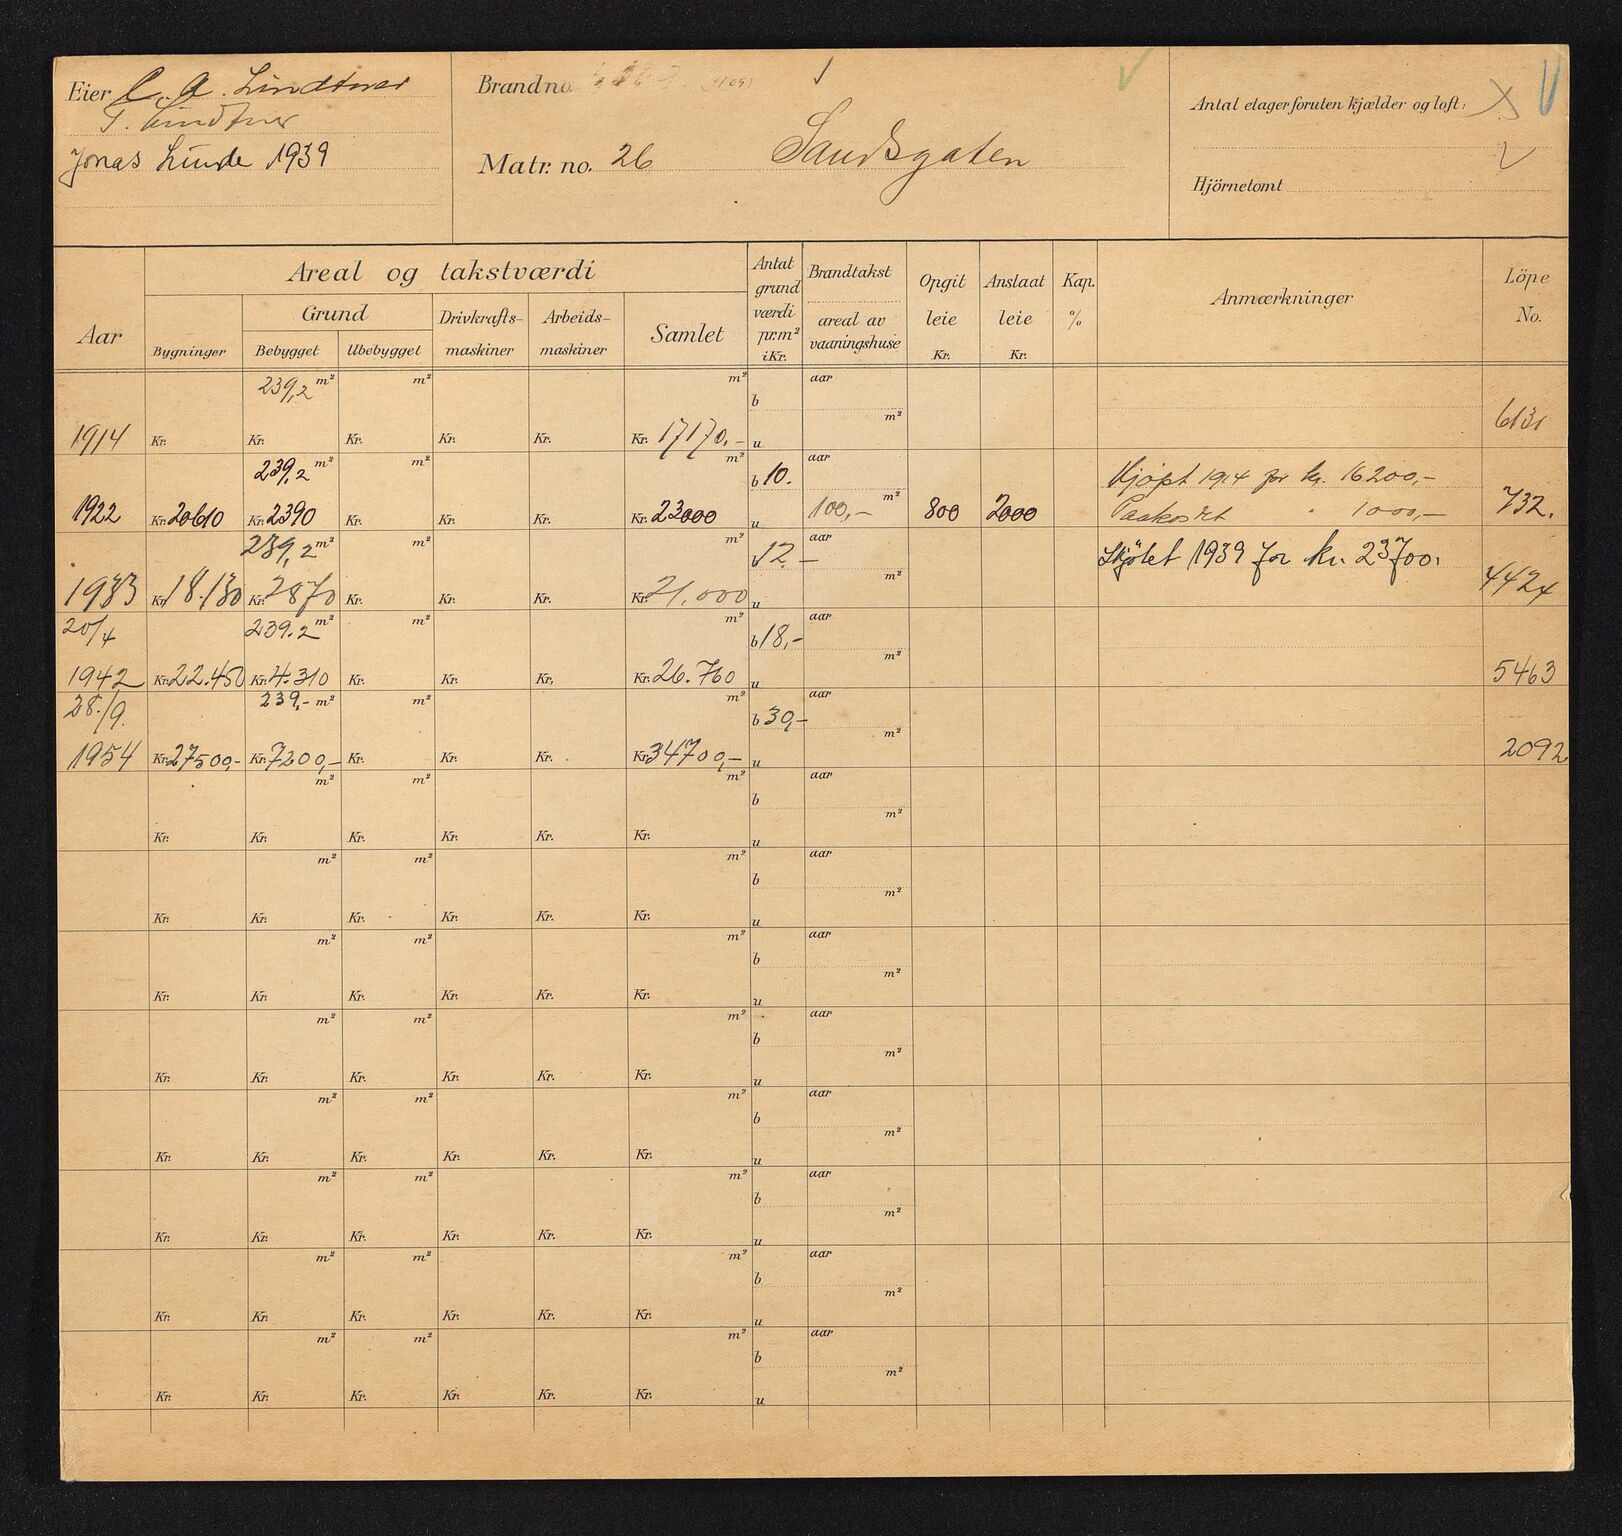 Eier C. A. Lindtner
T. Lindtner
Jonas Lunde 1939
Brandno.
Matr. no. 26 Sandsgaten
Antal etager foruten kjælder og loft:
Hjörnetomt
Aar
Areal og takstværdi
Bygninger
Grund
Bebygget Ubebygget
Drivkrafts-maskiner
Arbeids-maskiner
Samlet
Antat grund værdi pr. m² i Kr.
Brandtakst
areal av vaaningshuse
Opgit leie Kr.
Anslaat leie Kr.
Kap. %
Anmærkninger
Löpe No.
239,2 m² m² m² aar
b m²
1914 Kr. Kr. Kr. Kr. Kr. Kr. 17170,- u 6131
239,2 m² m² m² b 10. aar Kjöpt 1914 for kr. 16200,-
1922 Kr. 20610 Kr. 2390 Kr. Kr. Kr. Kr. 23000 u 100,- m² 800 2000 Paakostet " 1000,- 732.
239,2 m² m² m² b 12.- aar Skjötet 1939 for kr. 23700.
1933 Kr. 18.130 Kr. 2870 Kr. Kr. Kr. Kr. 21.000 u m² 4424
20/4 239.2 m² m² m² b 18,- aar
1942 Kr. 22.450 Kr. 4.310 Kr. Kr. Kr. Kr. 26.760 u m² 5463
28./9. 239,- m² m² m² b 30,- aar
1954 Kr. 27500,- Kr. 7200,- Kr. Kr. Kr. Kr. 34700,- u m² 2092
m² m² m² b aar m²
Kr. Kr. Kr. Kr. Kr. Kr. u
m² m² m² b aar m²
Kr. Kr. Kr. Kr. Kr. Kr. u
m² m² m² b aar m²
Kr. Kr. Kr. Kr. Kr. Kr. u
m² m² m² b aar m²
Kr. Kr. Kr. Kr. Kr. Kr. u
m² m² m² b aar m²
Kr. Kr. Kr. Kr. Kr. Kr. u
m² m² m² b aar m²
Kr. Kr. Kr. Kr. Kr. Kr. u
m² m² m² b aar m²
Kr. Kr. Kr. Kr. Kr. Kr. u
m² m² m² b aar m²
Kr. Kr. Kr. Kr. Kr. Kr. u